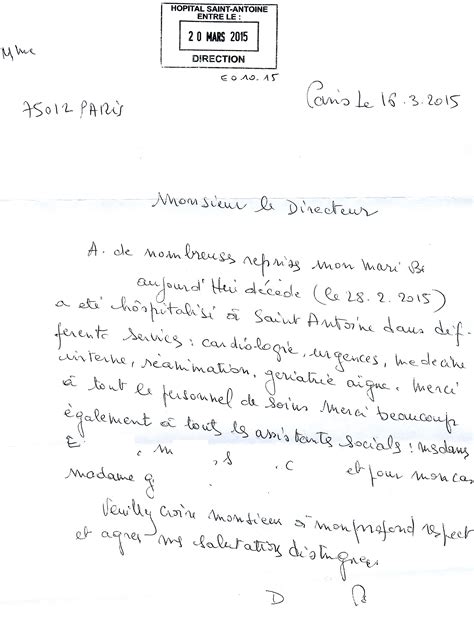 HOPITAL SAINT-ANTOINE
ENTRE LE :
20 MARS 2015
DIRECTION
E010.15
Mme
75012 PARis
Paris Le 16.3.2015
Monsieur le Directeur
A. de nombreuses reprises mon mari B
aujourd'Hui décédé (le 28.2.2015)
a eté hôspitalisé à Saint Antoine dans dif-
ferents services : cardiologie, urgences, medecine
interne, réanimation, geriatrie aigue. Merci
à tout le personnel de soins Merci beaucoup
également à touts les assistantes socials : msdams
E , m , s . c et pour mon cas
madame g
Veuilly croire monsieur à mon profond respect
et agreer mes salutations distinguees
D B